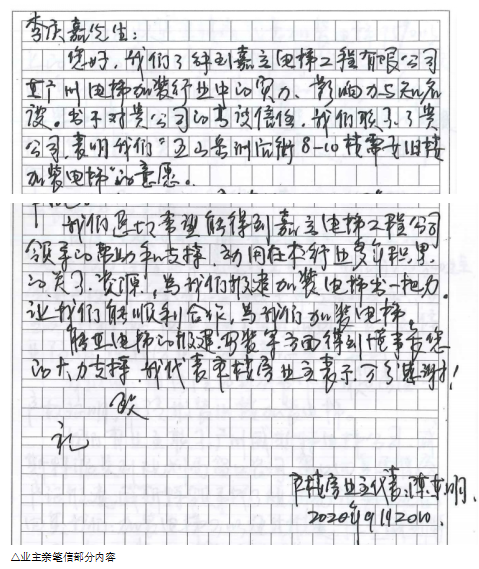 李庆嘉先生:
您好,我们了解到嘉立电梯工程有限公司
在广州电梯加装行业中的实力、影响力与知名
度。出于对贵公司的高度信任,我们联系了贵
公司,表明我们"五山 8-10栋需要旧楼
加装电梯"的意愿。
我们迫切希望能得到嘉立电梯工程公司
领导的帮助和支持,动用在本行业多年积累
的关系、资源,为我们报建加装电梯出一把力。
让我们能顺利合作,为我们加装电梯。
能在电梯的报建、安装等方面得到懂事长您
的大力支持,我代表本楼房业主表示万分感谢!
致
礼
本楼房业主代表:
2020年9月20日.
△业主亲笔信部分内容